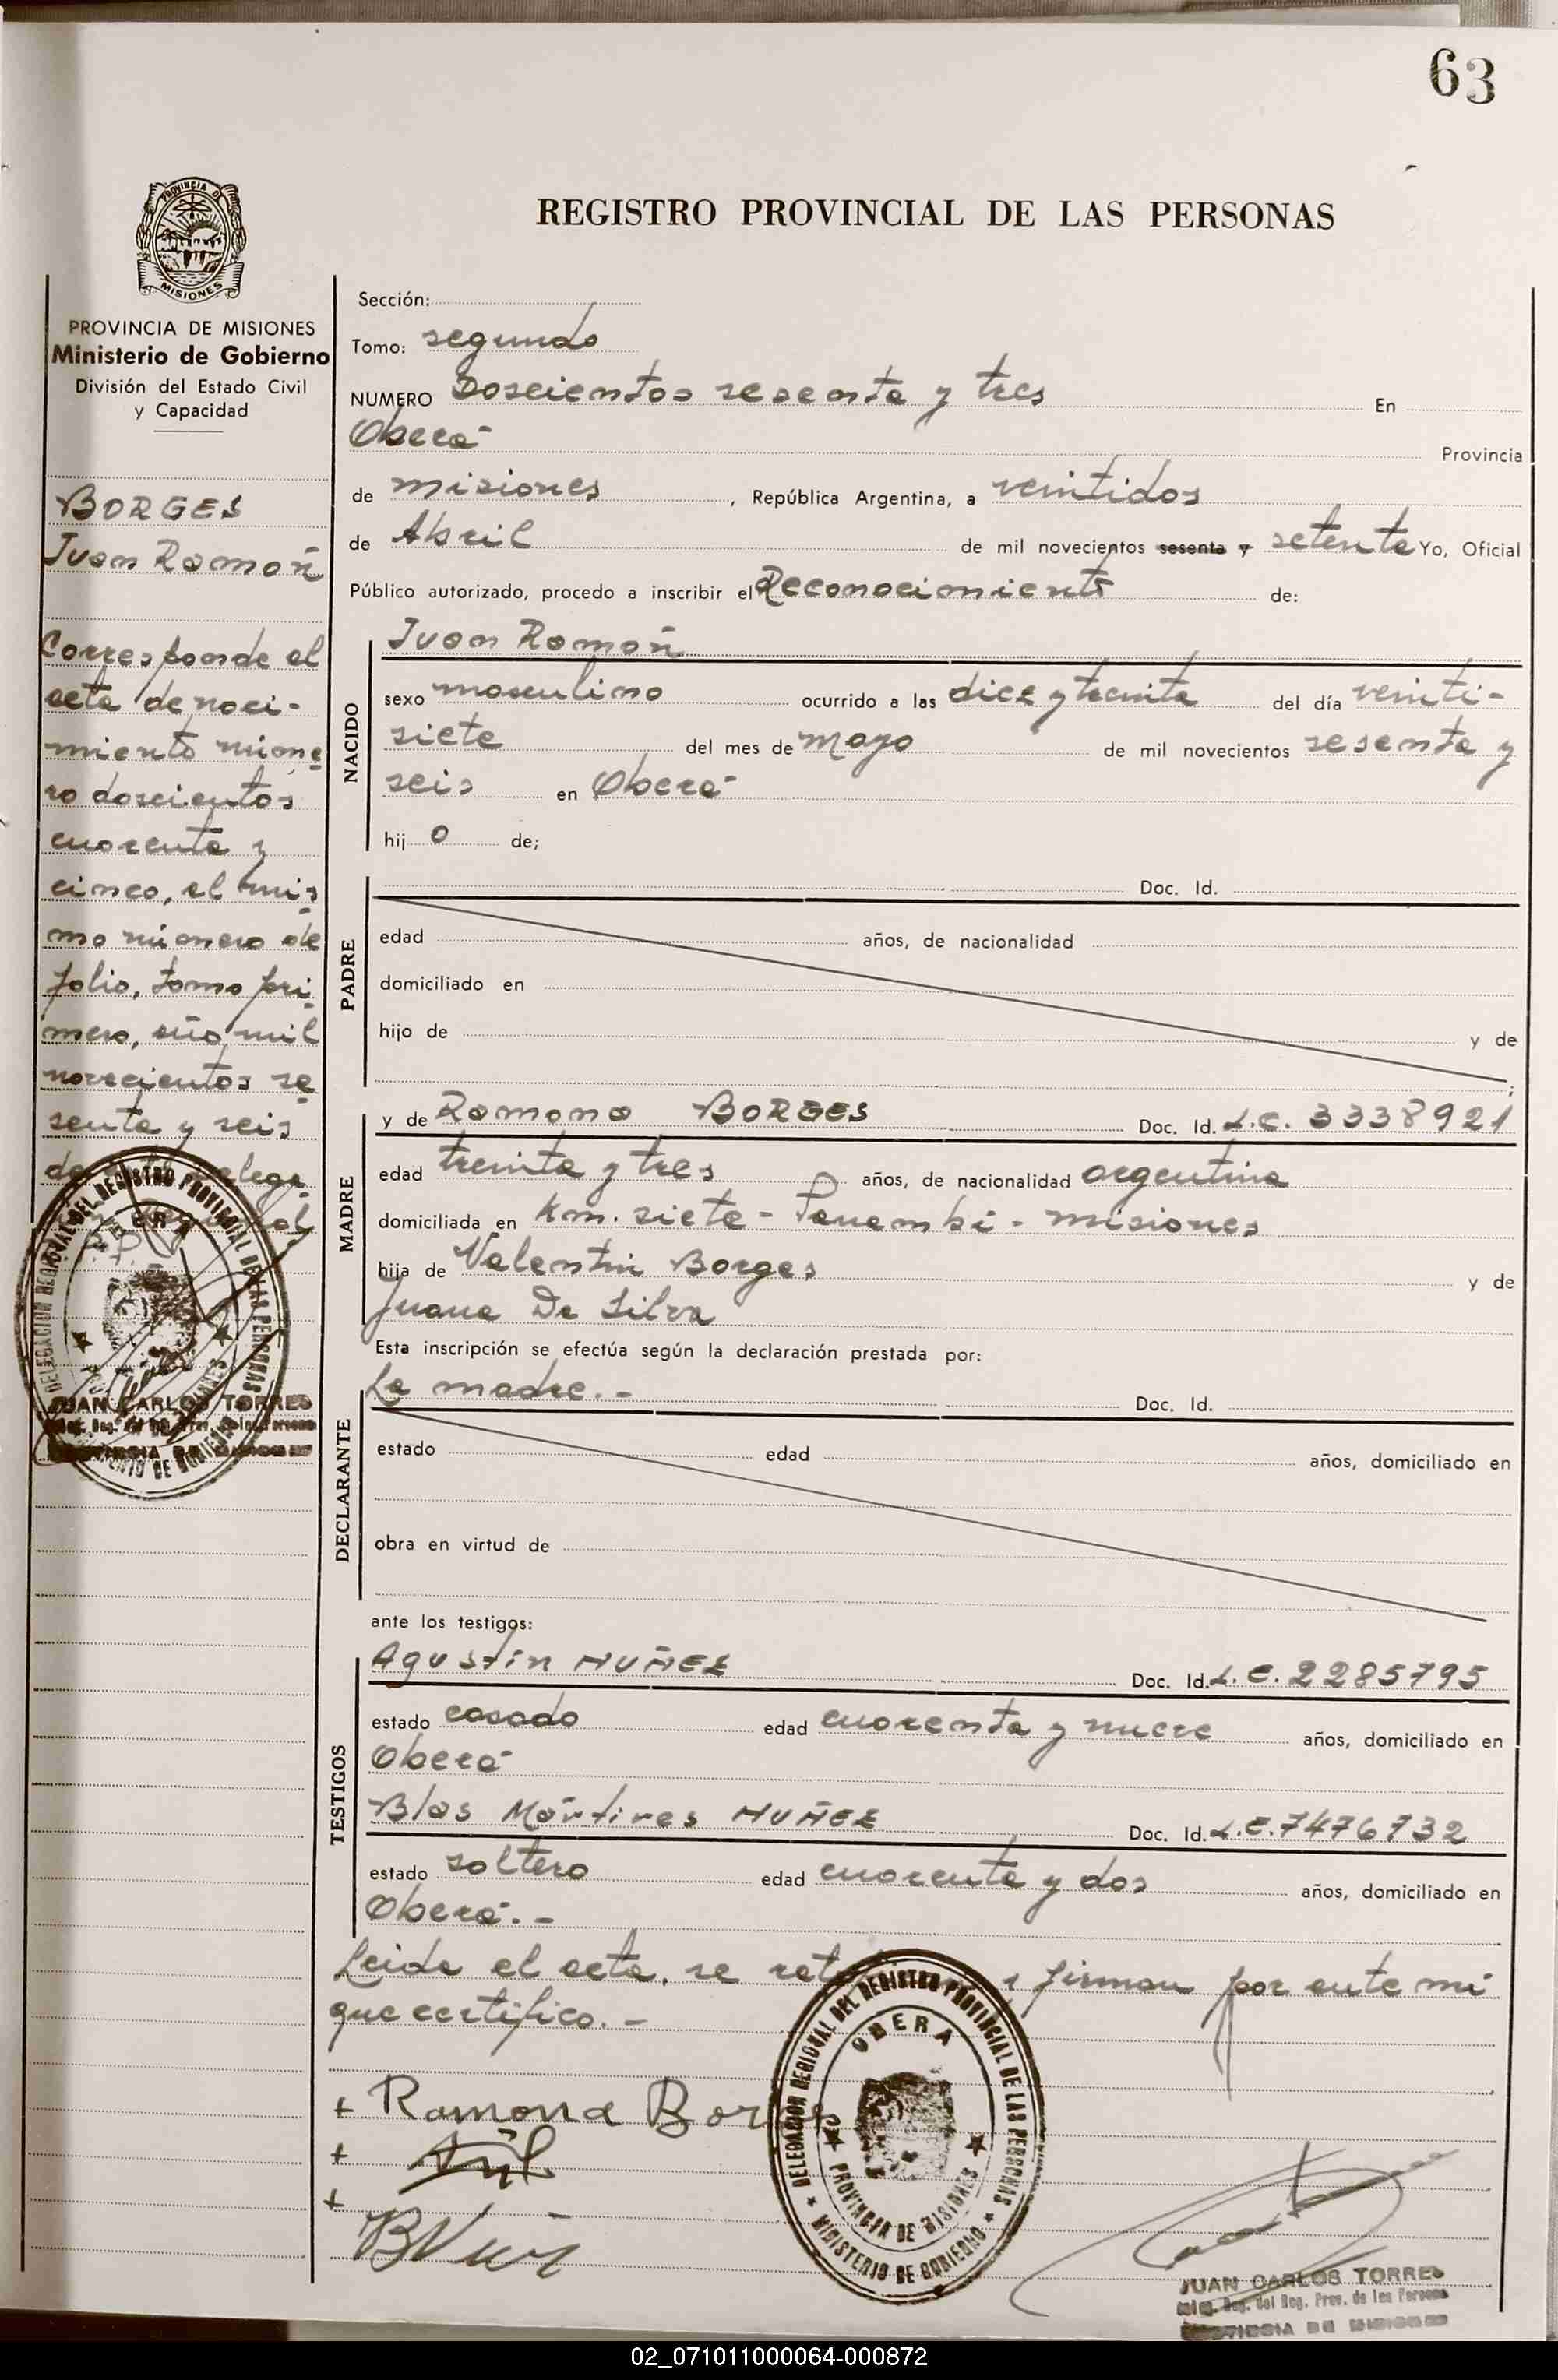 63
PROVINCIA DE
MISIONES
REGISTRO PROVINCIAL DE LAS PERSONAS
PROVINCIA DE MISIONES
Ministerio de Gobierno
División del Estado Civil
y Capacidad
BORGES
Juan Ramón
Corresponde al
acta de naci-
miento núme
ro doscientos
cuarenta y
cinco, al mis
mo número de
folio, tomo pri
mero, año mil
novecientos se
senta y seis
de
DELEGACION REGIONAL DEL REGISTRO PROVINCIAL DE LAS PERSONAS
JUAN CARLOS TORRES
Sección:
Tomo: segundo
NUMERO Doscientos sesenta y tres En
Oberá Provincia
de misiones, República Argentina, a veintidos
de Abril de mil novecientos sesenta y setenta Yo, Oficial
Público autorizado, procedo a inscribir el Reconocimiento de:
NACIDO
Juan Ramón
sexo masculino ocurrido a las diez y treinta del día veinti-
siete del mes de mayo de mil novecientos sesenta y
seis en Oberá
hij o de;
PADRE
Doc. Id.
edad años, de nacionalidad
domiciliado en
hijo de y de
;
MADRE
y de Ramona BORGES Doc. Id. L.C. 3338921
edad treinta y tres años, de nacionalidad argentina
domiciliada en Km. siete - Panambí - misiones
hija de Valentin Borges y de
Juana Da Silva
Esta inscripción se efectúa según la declaración prestada por:
DECLARANTE
La madre.- Doc. Id.
estado edad años, domiciliado en
obra en virtud de
ante los testigos:
TESTIGOS
Agustín NUÑEZ Doc. Id. L.E. 2285795
estado casado edad cuarenta y nueve años, domiciliado en
Oberá
Blas Mártires NUÑEZ Doc. Id. L.E. 7476732
estado soltero edad cuarenta y dos años, domiciliado en
Oberá.-
Leida el acta, se firman por ante mí
que certifico.-
+ Ramona Borges
+
+
DELEGACION REGIONAL DEL REGISTRO PROVINCIAL DE LAS PERSONAS
OBERA
PROVINCIA DE MISIONES
MINISTERIO DE GOBIERNO
JUAN CARLOS TORRES
Reg. del Reg. Prov. de las Personas
PROVINCIA DE MISIONES
02_071011000064-000872